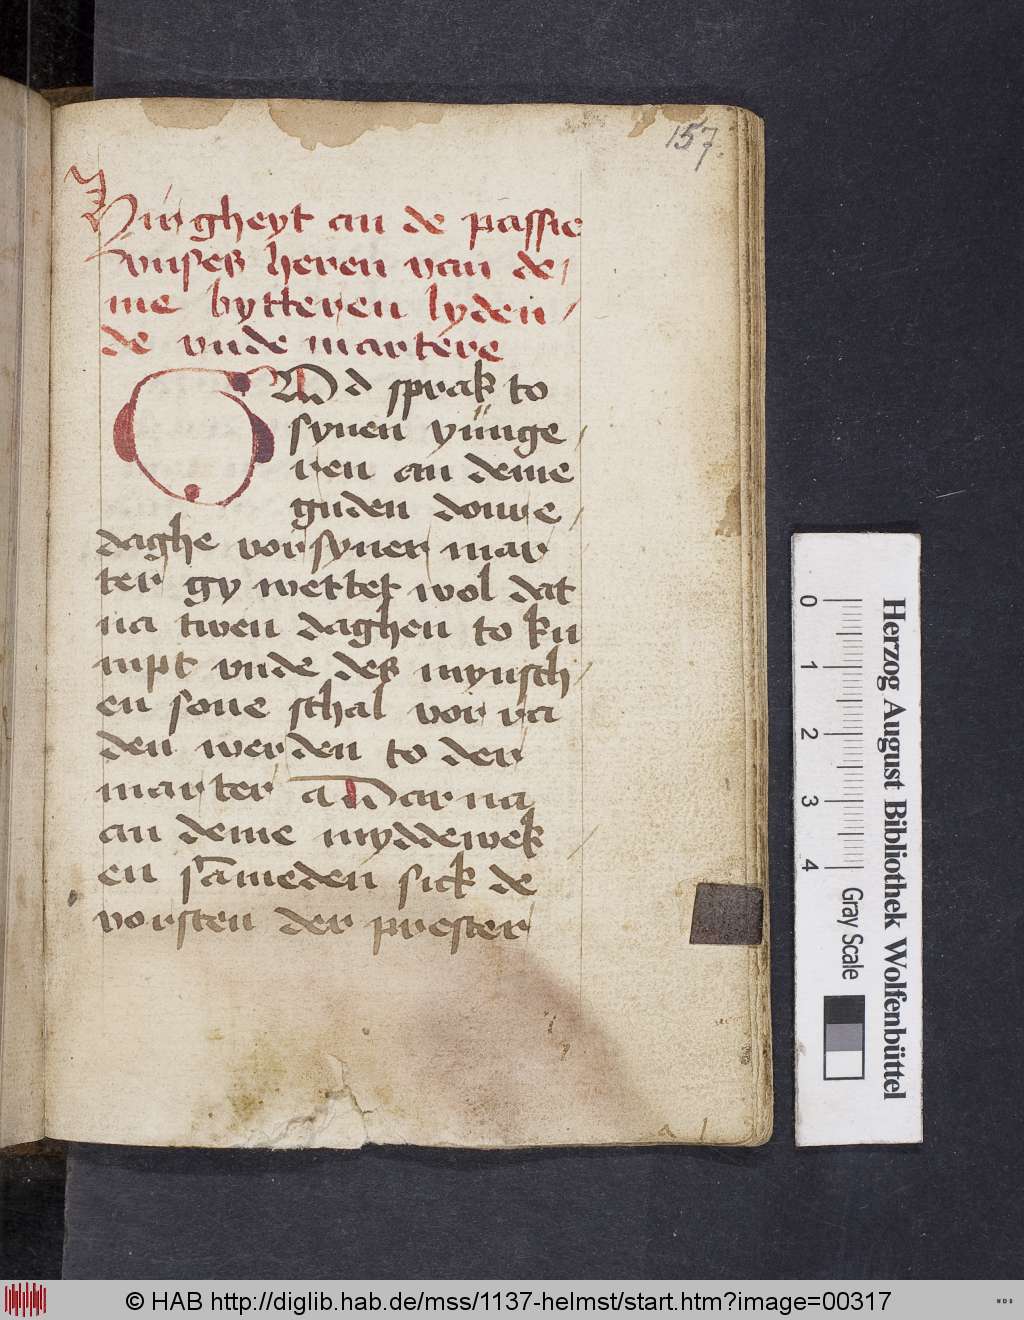 157
Hir gheyt an de passie
vnses heren van de/
me bytteren lyden/
de vnde martere
God sprak to
synen yünge/
ren an deme
guden donre/
daghe vor syner mar
ter gy wettet wol dat
na twen daghen to ku
mpt vnde des mynsch/
en sone schal vor ra
den werden to der
marter Dar na
an deme myddewek/
en sameden sick de
vorsten der prester
Herzog August Bibliothek Wolfenbüttel
0 1 2 3 4 Gray Scale
© HAB http://diglib.hab.de/mss/1137-helmst/start.htm?image=00317